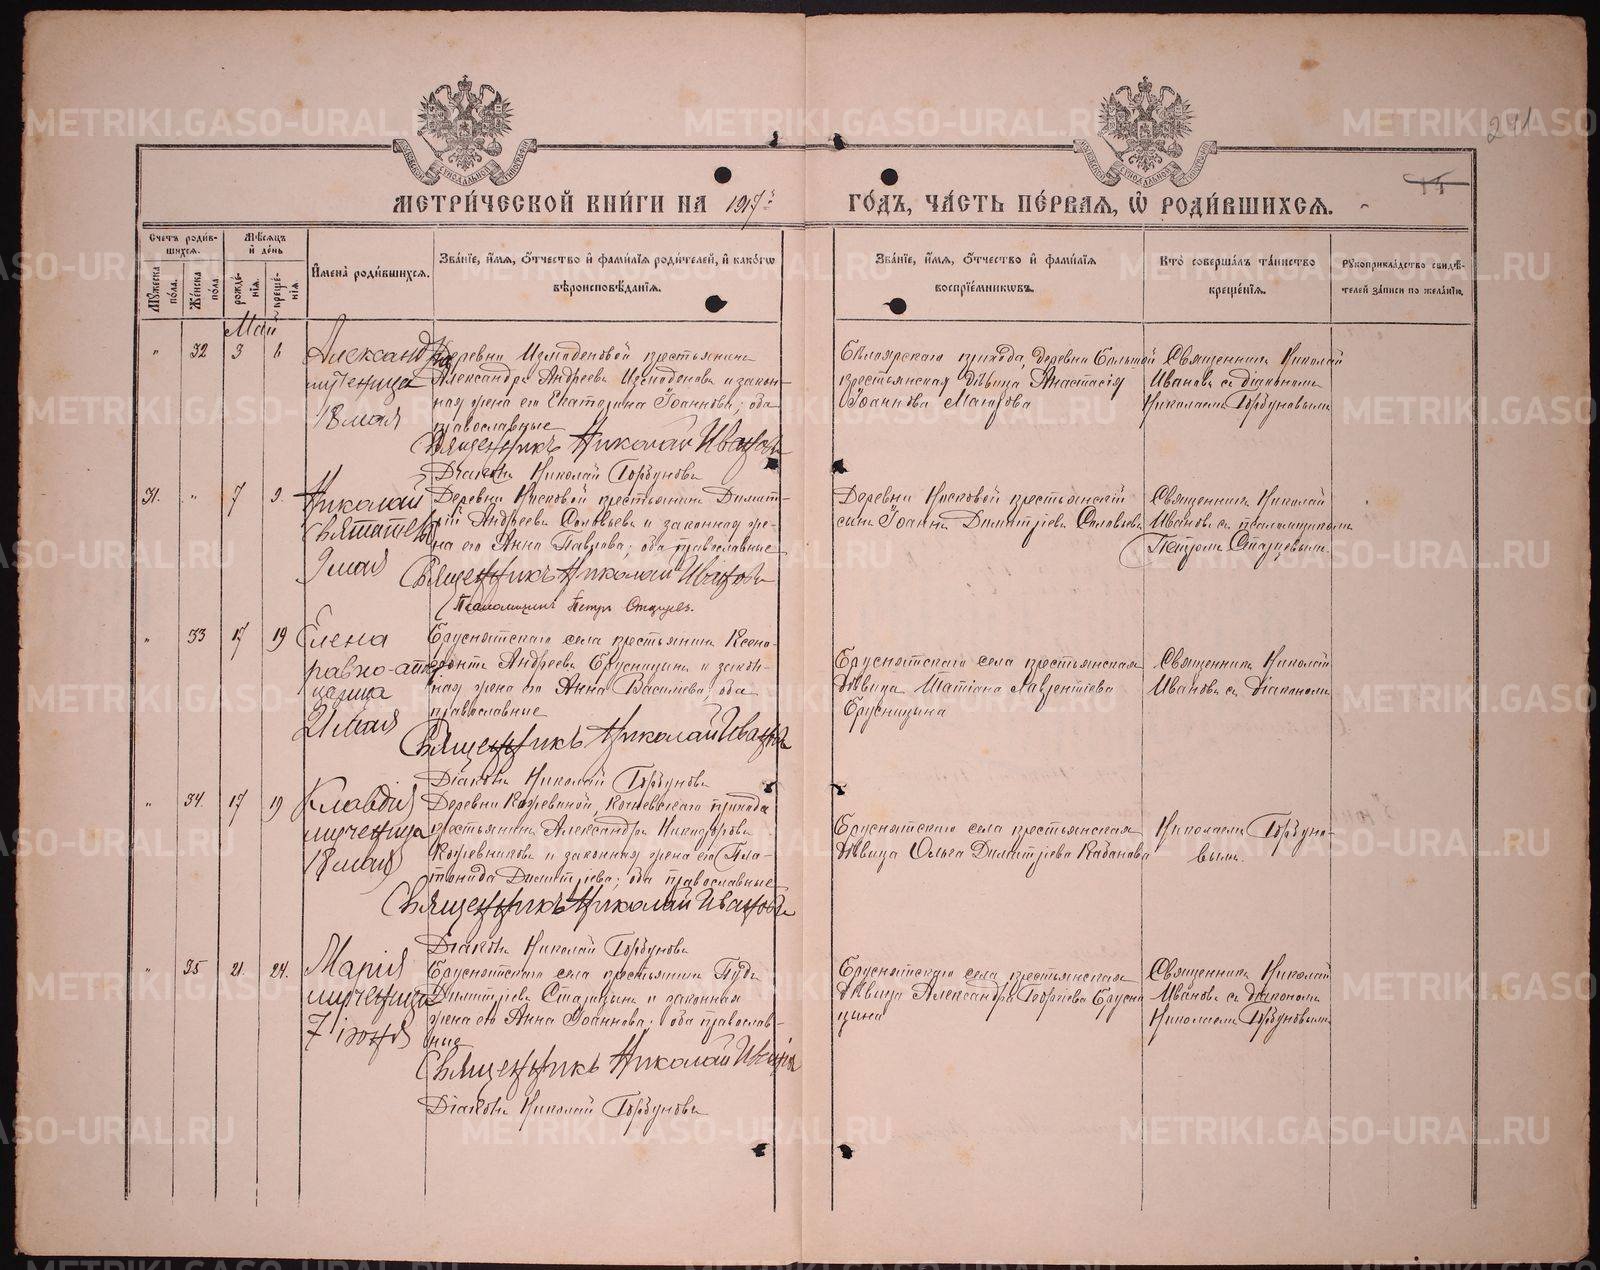 241
МЕТРИЧЕСКОЙ КНИГИ НА 1917 й ГОДЪ, ЧАСТЬ ПЕРВАЯ, Ѡ РОДИВШИХСЯ.
Счетъ родившихся.
Мѣсяцъ и день
Мужеска пола.
Женска пола
рожденія.
крещенія.
Имена родившихся.
Званіе, имя, отчество и фамилія родителей, и какогѡ вѣроисповѣданія.
Званіе, имя, отчество и фамилія воспріемниковъ.
Кто совершалъ таинство крещенія.
Рукоприкладство свидѣтелей записи по желанію.
Май
" 32 3 6
Александра
мученица
18 мая
Деревни Измоденовой крестьянинъ
Александръ Андреевъ Измоденовъ и закон-
ная жена его Екатерина Іоаннова; оба
православные
Священникъ Николай Ивановъ
Діаконъ Николай Горбуновъ
Бѣлоярскаго прихода, деревни Большой
крестьянская дѣвица Анастасія
Іоаннова
Священникъ Николай
Ивановъ съ діакономъ
Николаемъ Горбуновымъ
31. " 7 9.
Николай
Святитель
9 мая
Деревни крестьянинъ Димит-
рій Андреевъ Соловьевъ и законная же-
на его Анна; оба православные
Священникъ Николай Ивановъ
Псаломщикъ Петръ Старцевъ.
Деревни крестьянскій
сынъ Іоаннъ Димитріевъ Соловьевъ
Священникъ Николай
Ивановъ съ псаломщикомъ
Петромъ Старцевымъ.
" 33 17 19
Елена
равно-ап.
царица
21 мая
Бруснятскаго села крестьянинъ Ксено-
фонтъ Андреевъ Брусницынъ и закон-
ная жена его Анна Васильева; оба
православные
Священникъ Николай Ивановъ
Діаконъ Николай Горбуновъ
Бруснятскаго села крестьянская
дѣвица Татіана Лаврентіева
Брусницына
Священникъ Николай
Ивановъ съ діакономъ
" 34. 17 19
Клавдія
мученица
18 мая
Деревни Кочневскаго прихода
крестьянинъ Александръ Никифоровъ
Кожевниковъ и законная жена его Пла-
тонида Димитріева; оба православные
Священникъ Николай Ивановъ
Діаконъ Николай Горбуновъ
Бруснятскаго села крестьянская
дѣвица Ольга Димитріева Кабанова
Николаемъ Горбуно-
вымъ.
" 35 21. 24.
Марія
мученица
7 іюня
Бруснятскаго села крестьянинъ Пудъ
Димитріевъ и законная
жена его Анна Іоаннова; оба православ-
ные
Священникъ Николай Ивановъ
Діаконъ Николай Горбуновъ
Бруснятскаго села крестьянская
дѣвица Александра Георгіева Брусни
цына
Священникъ Николай
Ивановъ съ діакономъ
Николаемъ Горбуновымъ
METRIKI.GASO-URAL.RU